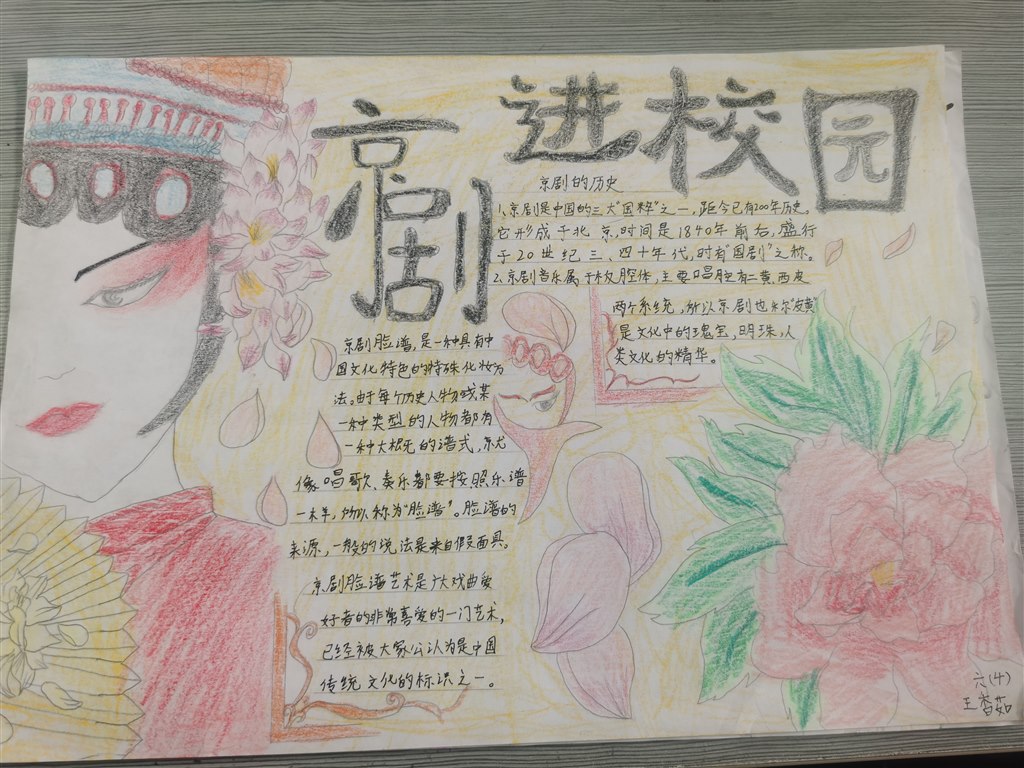 京剧进校园
京剧的历史
1、京剧是中国的三大"国粹"之一，距今已有200年历史。
它形成于北京，时间是1840年前右，盛行
于20世纪三、四十年代，时有"国剧"之称。
2、京剧音乐属于板腔体，主要唱腔有二黄、西皮
两个系统，所以京剧也称"皮黄"
是文化中的瑰宝，明珠，人
类文化的精华。
京剧脸谱，是一种具有中
国文化特色的特殊化妆方
法。由于每个历史人物或某
一种类型的人物都有
一种大概的谱式，就
像唱歌、奏乐都要按照乐谱
一样，所以称为"脸谱"。脸谱的
来源，一般的说法是来自假面具。
京剧脸谱艺术是广大戏曲爱
好者的非常喜爱的一门艺术，
已经被大家公认为是中国
传统文化的标识之一。
六(4)
王香茹